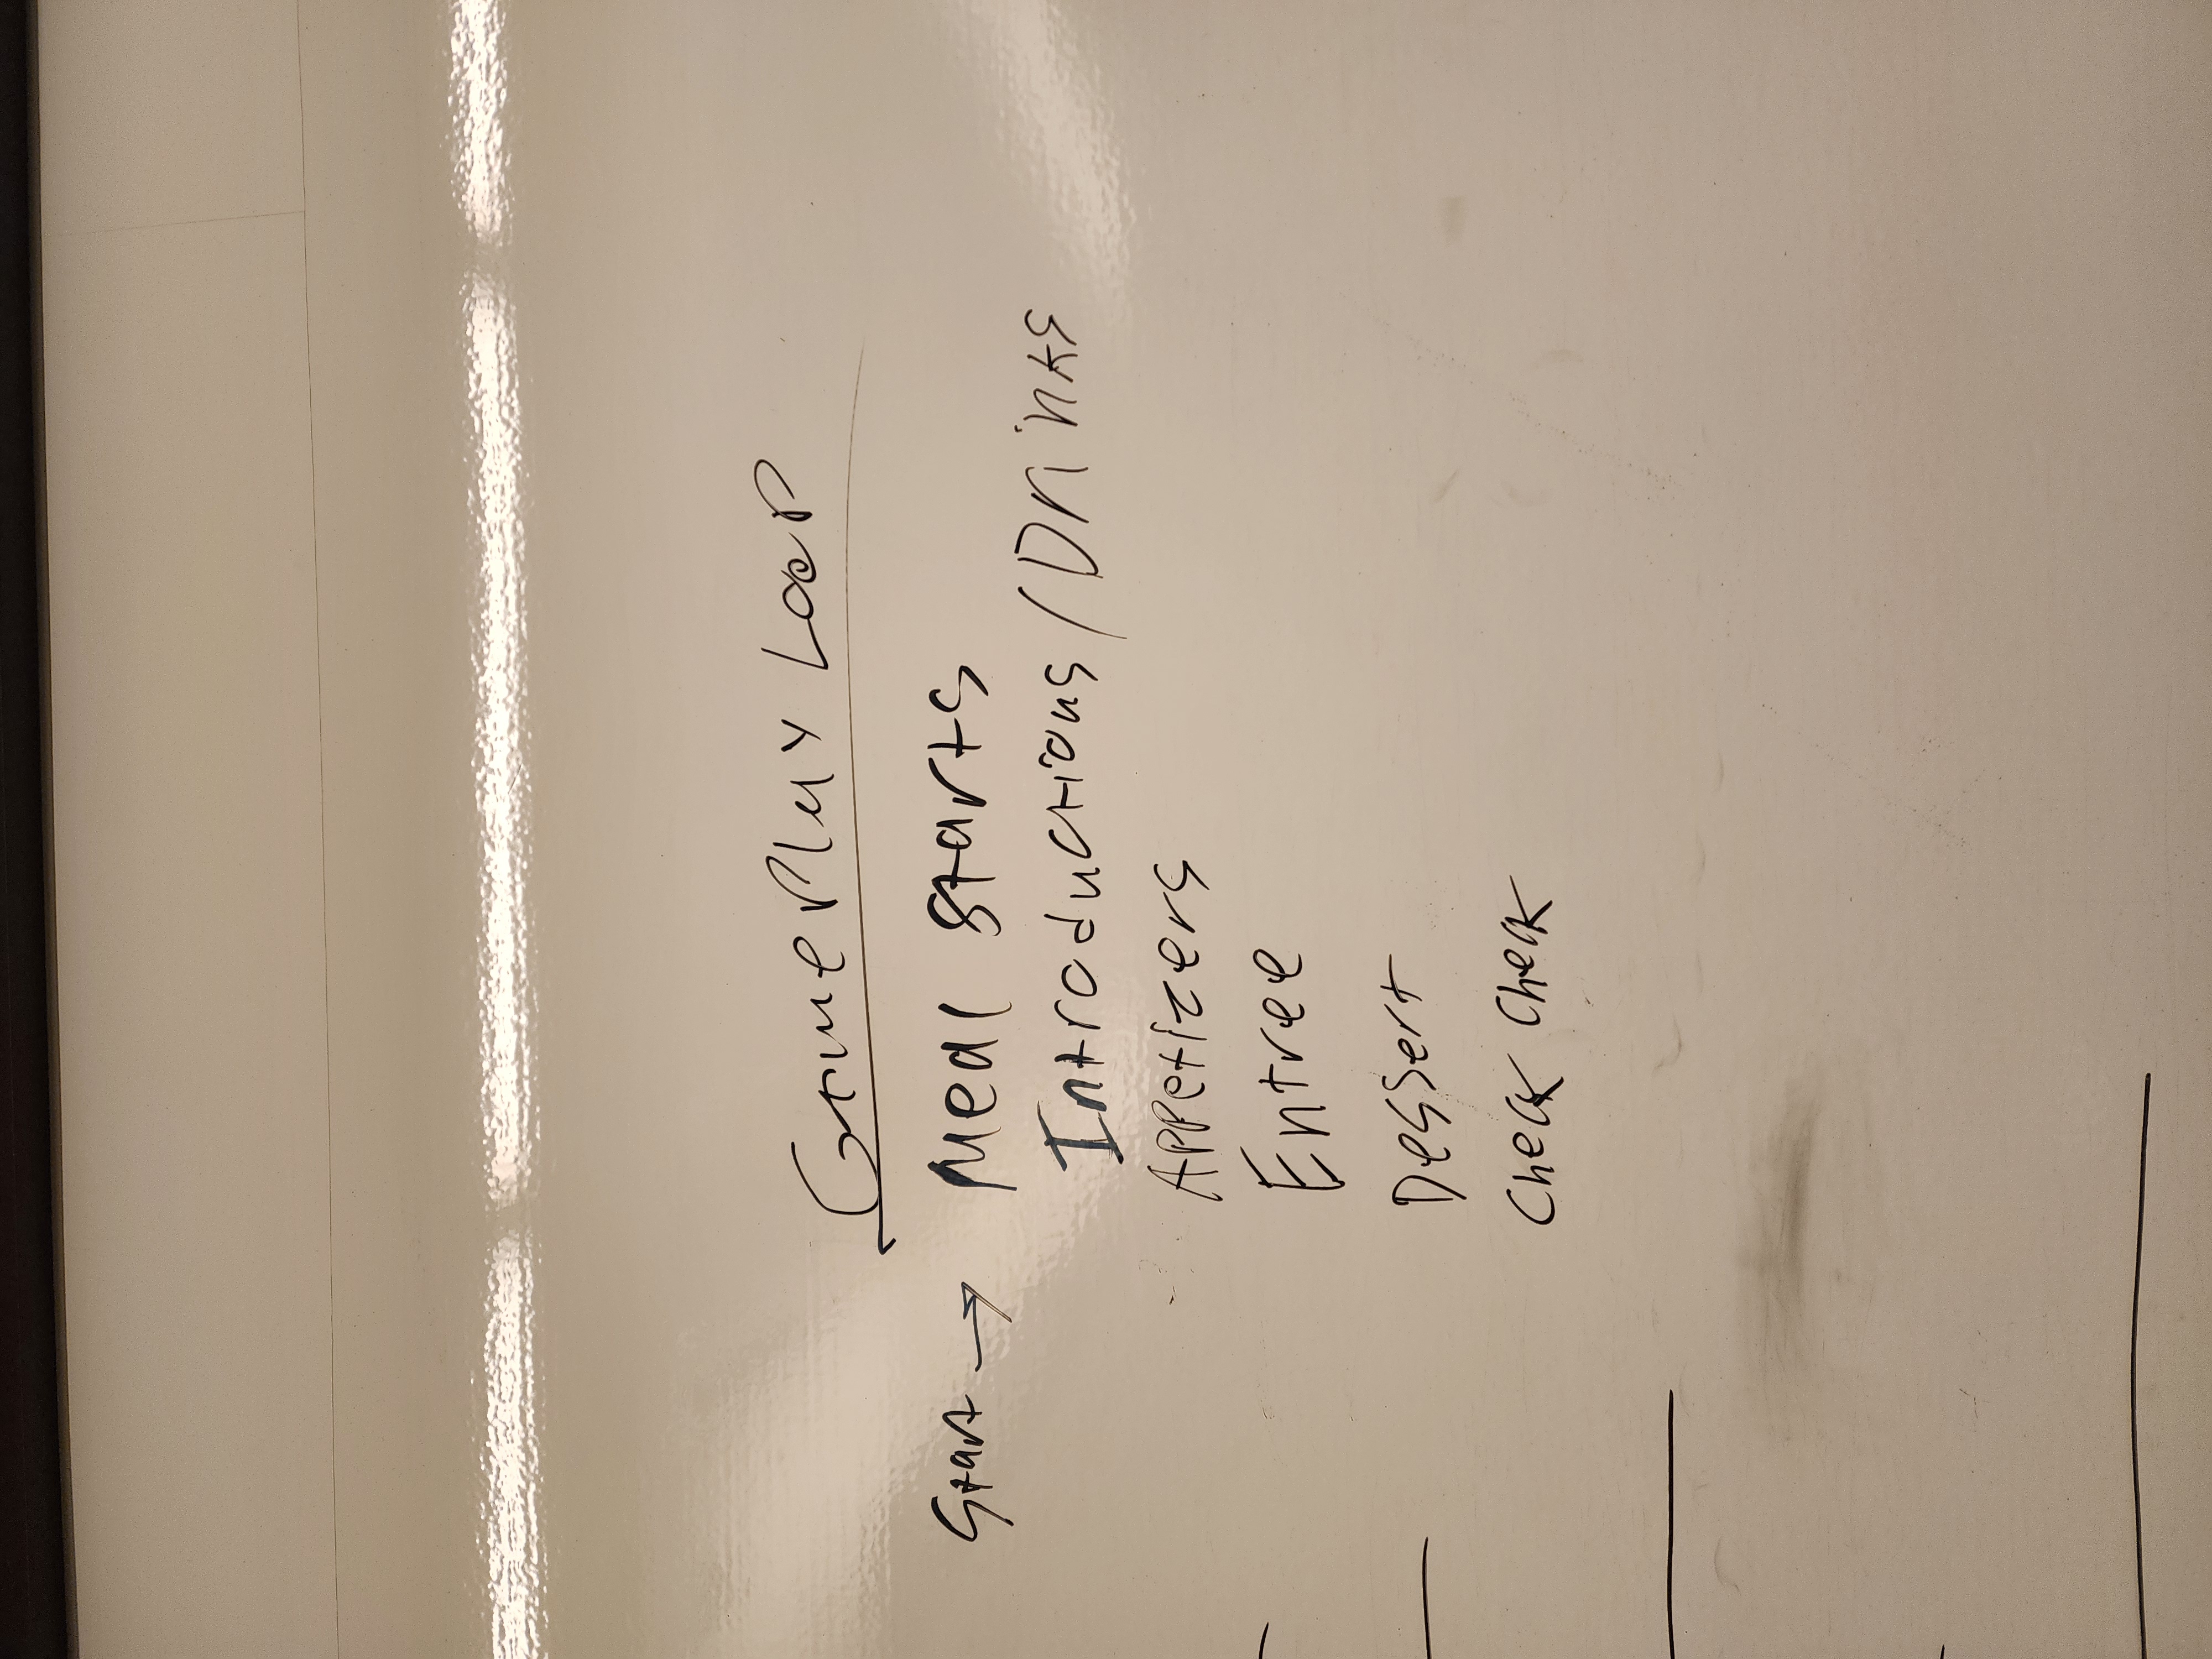 GamePlay Loop
Start → Meal starts
Introductions / Drinks
Appetizers
Entree
Dessert
Check Check